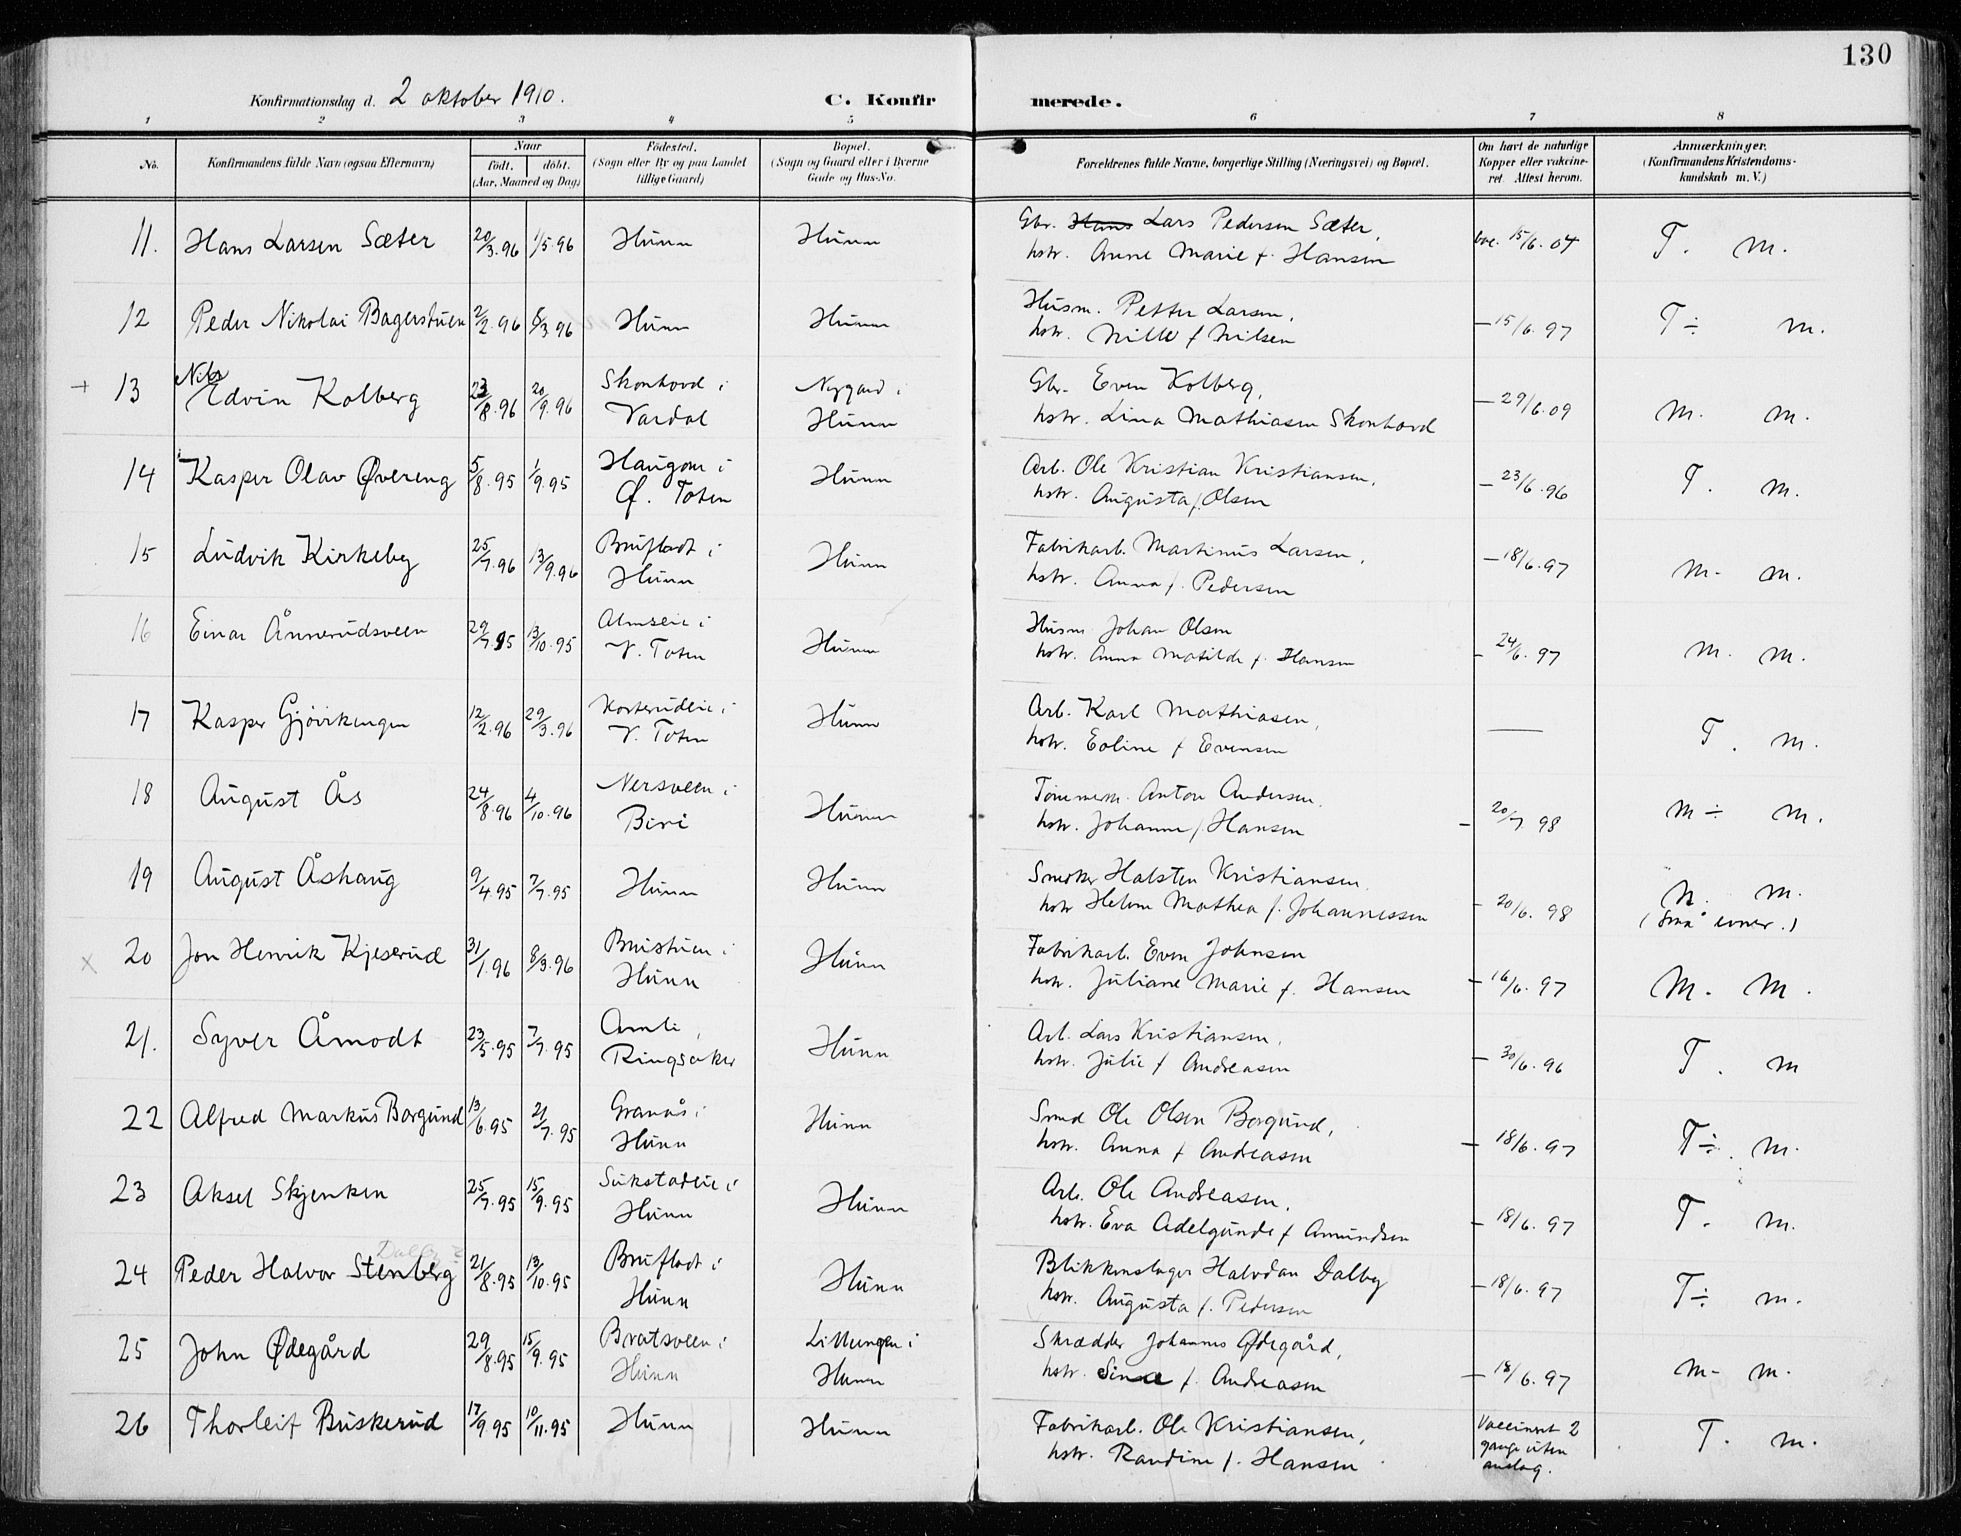 130
Konfirmationsdag d. 2 oktober 1910. C. Konfirmerede.
1 2 3 4 5 6 7 8
No. Konfirmandens fulde Navn (ogsaa Efternavn) Naar født. døbt. (Aar, Maaned og Dag) Fødested. (Sogn eller By og paa Landet tillige Gaard) Bopæl. (Sogn og Gaard eller i Byerne Gade og Hus-No. Forældrenes fulde Navne, borgerlige Stilling (Næringsvei) og Bopæl. Om havt de naturlige Kopper eller vakcineret. Attest herom. Anmærkninger. (Konfirmandens Kristendomskundskab m. V.)
11. Hans Larsen Sæter 20/3.96 1/5.96 Hunn Hunn Gbr. Hans Lars Pedersen Sæter, vac. 15/6.04 T. M.
hstr. Anne Marie f. Hansen
12 Peder Nikolai Bagerstuen 2/2.96 8/3.96 Hunn Hunn Husm. Petter Larsen, — 15/6.97 T÷ M.
hstr. Nille f Nilsen
+ 13 Nils Edvin Kolberg 23/8.96 20/9.96 Skonhovd i Vardal Nygard i Hunn Gbr. Even Kolberg, — 29/6.09 M. M.
hstr. Lina Mathiasen Skonhovd
14 Kasper Olav Øvereng 5/8.95 1/9.95 Haugom i Ø. Toten Hunn Arb. Ole Kristian Kristiansen, — 23/6.96 T. M.
hstr. Augusta f. Olsen
15 Ludvik Kirkeby 25/7.96 13/9.96 Brufladt i Hunn Hunn Fabrikarb. Martinus Larsen, — 18/6.97 M. M.
hstr. Anna f. Pedersen
16 Einar Ånnerudsveen 29/7.95 13/10.95 Almseie i V. Toten Hunn Husm Johan Olsen — 24/6.97 M. M.
hstr. Anna Matilde f. Hansen
17 Kasper Gjøvikengen 12/2.96 29/3.96 Korterudeie i V. Toten Hunn Arb. Karl Mathiasen, — T. M.
hstr. Eoline f Evensen
18 August Ås 24/8.96 4/10.96 Nersveen i Biri Hunn Tømmerm. Anton Andersen. — 20/7 98 M÷ M.
hstr. Johanne f. Hansen
19 August Åshaug 9/4.95 7/7.95 Hunn Hunn Snedker Halsten Kristiansen. — 20/6.98 N. M.
hstr Helene Mathea f. Johannessen (Små evner.)
x 20 Jon Henrik Kjeserud 31/1.96 8/3.96 Brustuen i Hunn Hunn Fabrikarb. Even Johnsen — 16/6.97 M. M.
hstr. Juliane Marie f. Hansen
21. Syver Åmodt 23/5.95 7/7.95 Amli, Ringsaker Hunn Arb. Lars Kristiansen, — 30/6.96 T. M
hstr. Julie f Andreasen
22 Alfred Markus Borgund 13/6.95 21/7.95 Granås i Hunn Hunn Smed Ole Olsen Borgund, — 18/6.97 T÷. M.
hstr. Anna f Andreasen
23 Aksel Skjenken 25/7.95 15/9.95 Sukstadeie i Hunn Hunn Arb. Ole Andreasen, — 18/6.97 T. M.
hstr. Eva Adelgunde f Amundsen
24 Peder Halvor Stenberg Dalby 21/8.95 13/10.95 Brufladt i Hunn Hunn Blikkenslager Halvdan Dalby — 18/6.97 T÷ M.
hstr. Augusta f. Pedersen
25 John Ødegård 29/8.95 15/9.95 Bratsveen i Hunn Littlengen i Hunn Skrædder Johannes Ødegård, — 18/6.97 M- M.
hstr. Sina f. Andreasen
26 Thorleif Buskerud 17/9.95 10/11.95 Hunn Hunn Fabrikarb. Ole Kristiansen, Vaccineret 2 gange uten anslag. T. M.
hstr. Randine f. Hansen